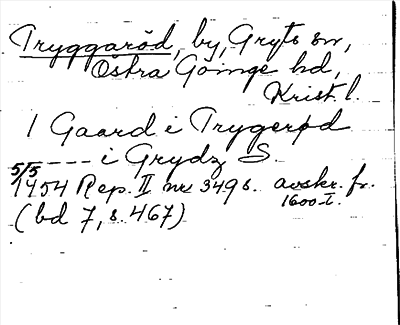 Tryggaröd, by, Gryts sn,
Östra Göinge hd,
Krist. l.
1 Gaard i Trygerød
---- i Grydz S.
5/5
1454 Rep. II nr 349 s. avskr. fr.
1600-t.
(bd 7, s. 467)